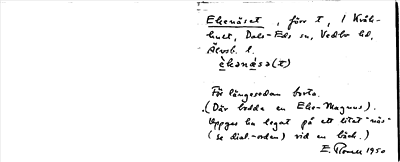 Ekenäset, förr t, i Kråk-
huet, Dals-Eds sn, Vedbo hd,
Älvsb. l.
èkenä̀sə(t)
För längesedan borta.
(Där bodde en Eke-Magnus).
Uppges ha legat på ett litet "näs"
(se dial.-orden) vid en bäck.)
E. 1950